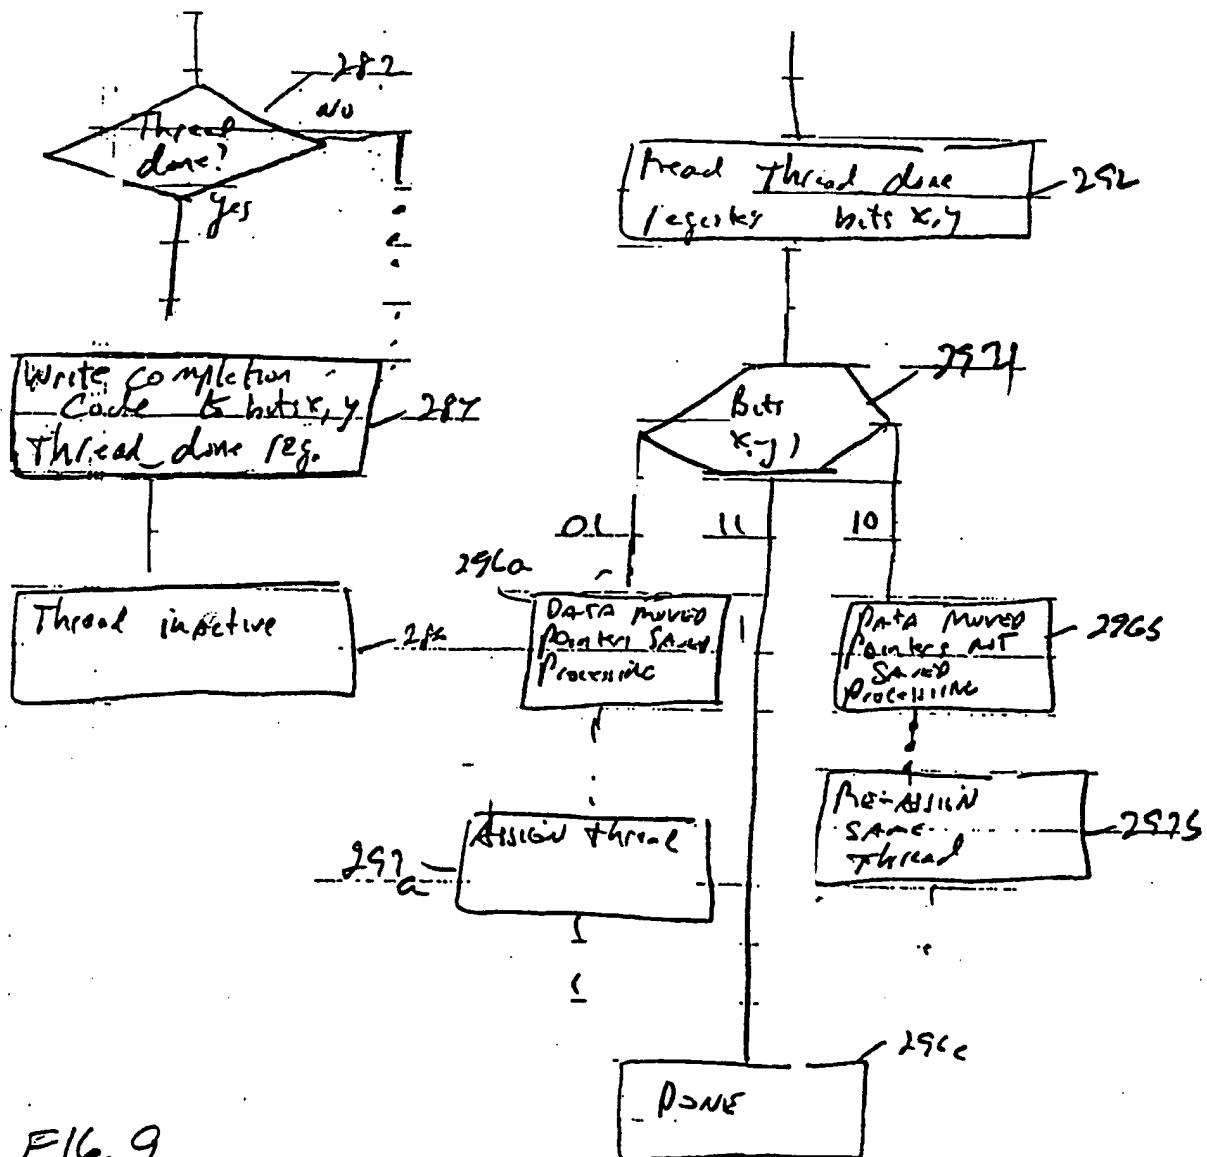 282
NO
Thread
done?
yes
Write completion
Code to bits x, y
Thread_done reg.
287
Thread inactive
286
Read Thread done
registers bits x, y
292
Bits
x, y ?
01
11
10
296a
DATA MOVED
Pointers SAVED
Processing
DATA MOVED
Pointers NOT
SAVED
Processing
296b
297
a
ASSIGN thread
RE-ASSIGN
SAME
Thread
297b
296c
DONE
FIG. 9